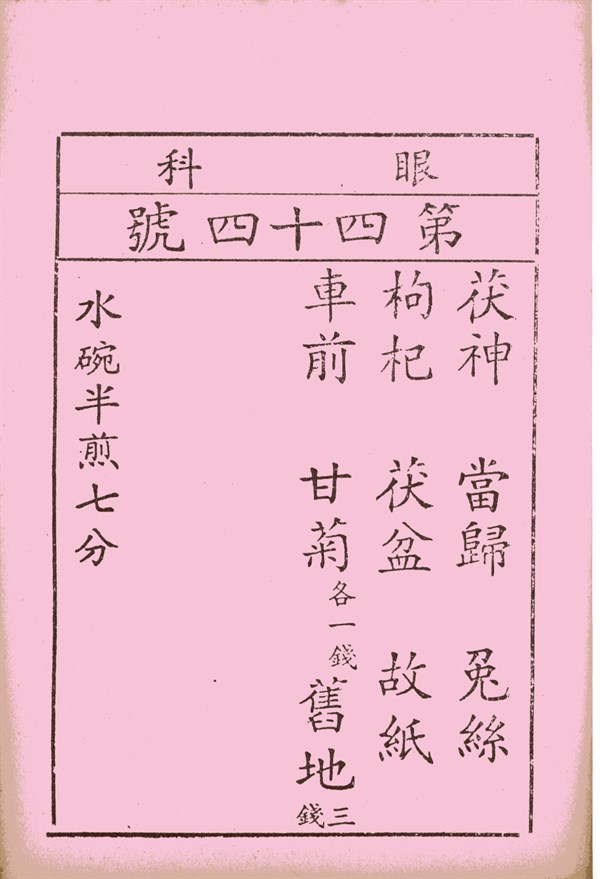 眼科
第四十四號
茯神 當歸 兎絲
枸杞 茯盆 故紙
車前 甘菊 各一錢 舊地 三錢
水碗半煎七分